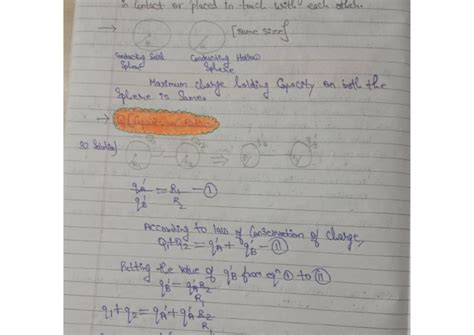 in contact or placed in touch with each other.
→ [same size]
Conducting Solid Sphere Conducting Hollow Sphere
Maximum charge holding Capacity on both the
Sphere is Same.
→
30 Solution)
q'A/q'B = R1/R2 — (I)
According to law of Conservation of charge,
Q1+Q2 = q'A + q'B — (II)
Putting the value of q'B from eqn (I) to (II)
q'B = q'A R2/R1
q1+q2 = q'A + q'A R2/R1